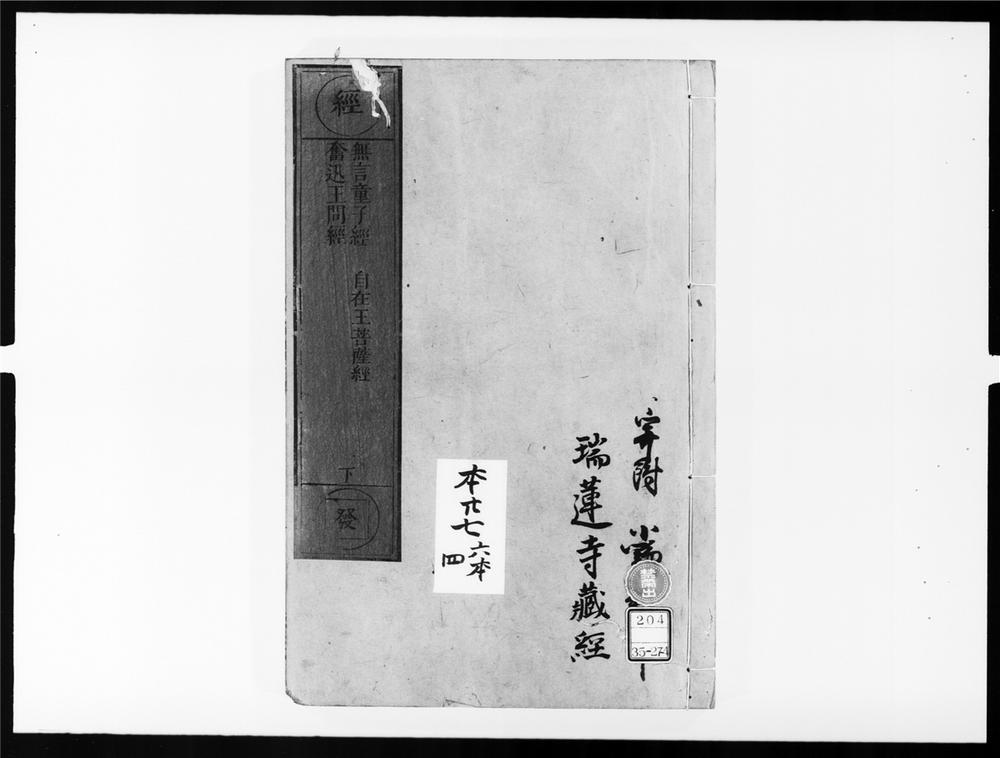 經
無言童子經 自在王菩薩經
奮迅王問經
下
發
本廿七
六本
四
寄附
瑞蓮寺藏經
禁帶出
204
35-274